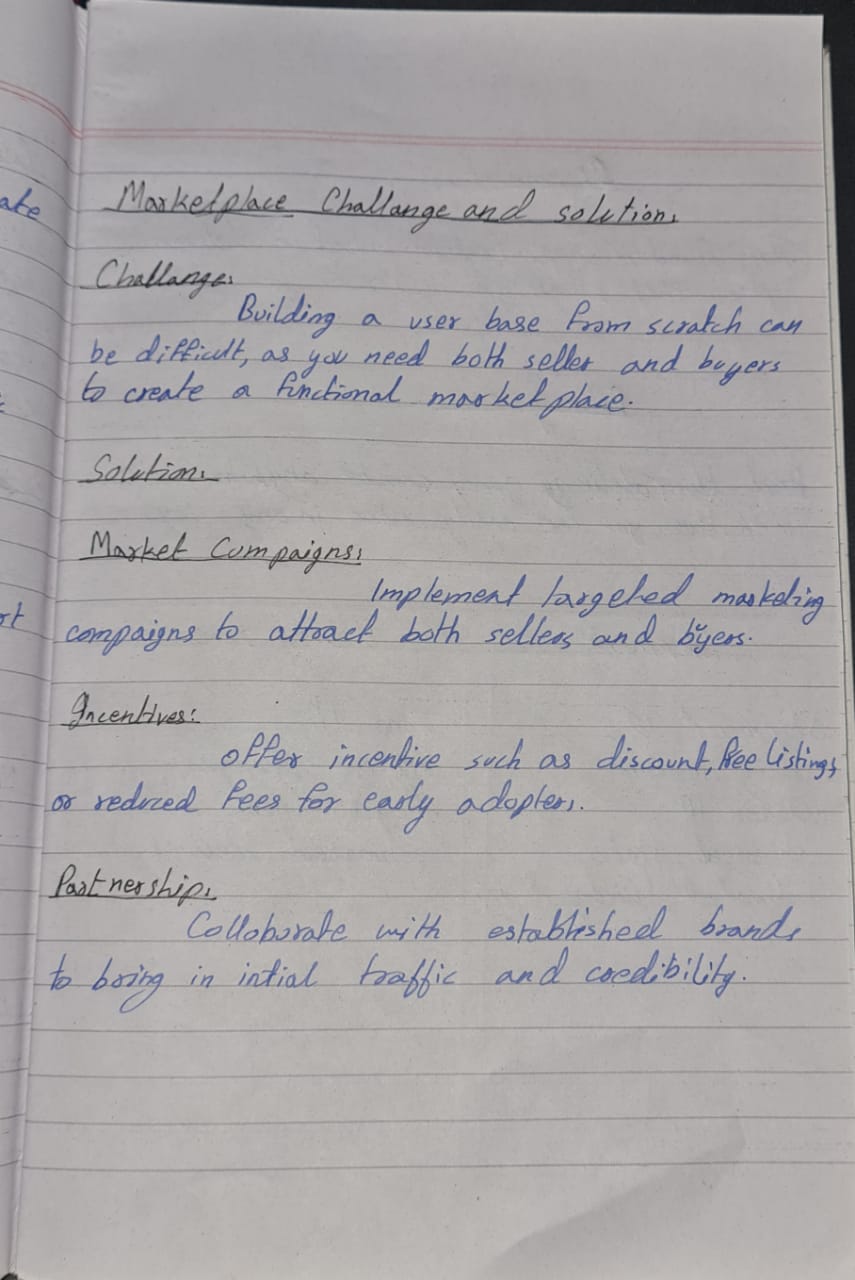 ate
Marketplace Challange and solution:
Challange:
Building a user base from scratch can
be difficult, as you need both seller and buyers
to create a functional marketplace.
Solution:
Market Compaigns:
Implement targeted marketing
rt
compaigns to attract both sellers and buyers.
Incentives:
offer incentive such as discount, free listings
or reduced fees for early adopters.
Partnership:
Colloborate with established brands
to bring in intial traffic and credibility.